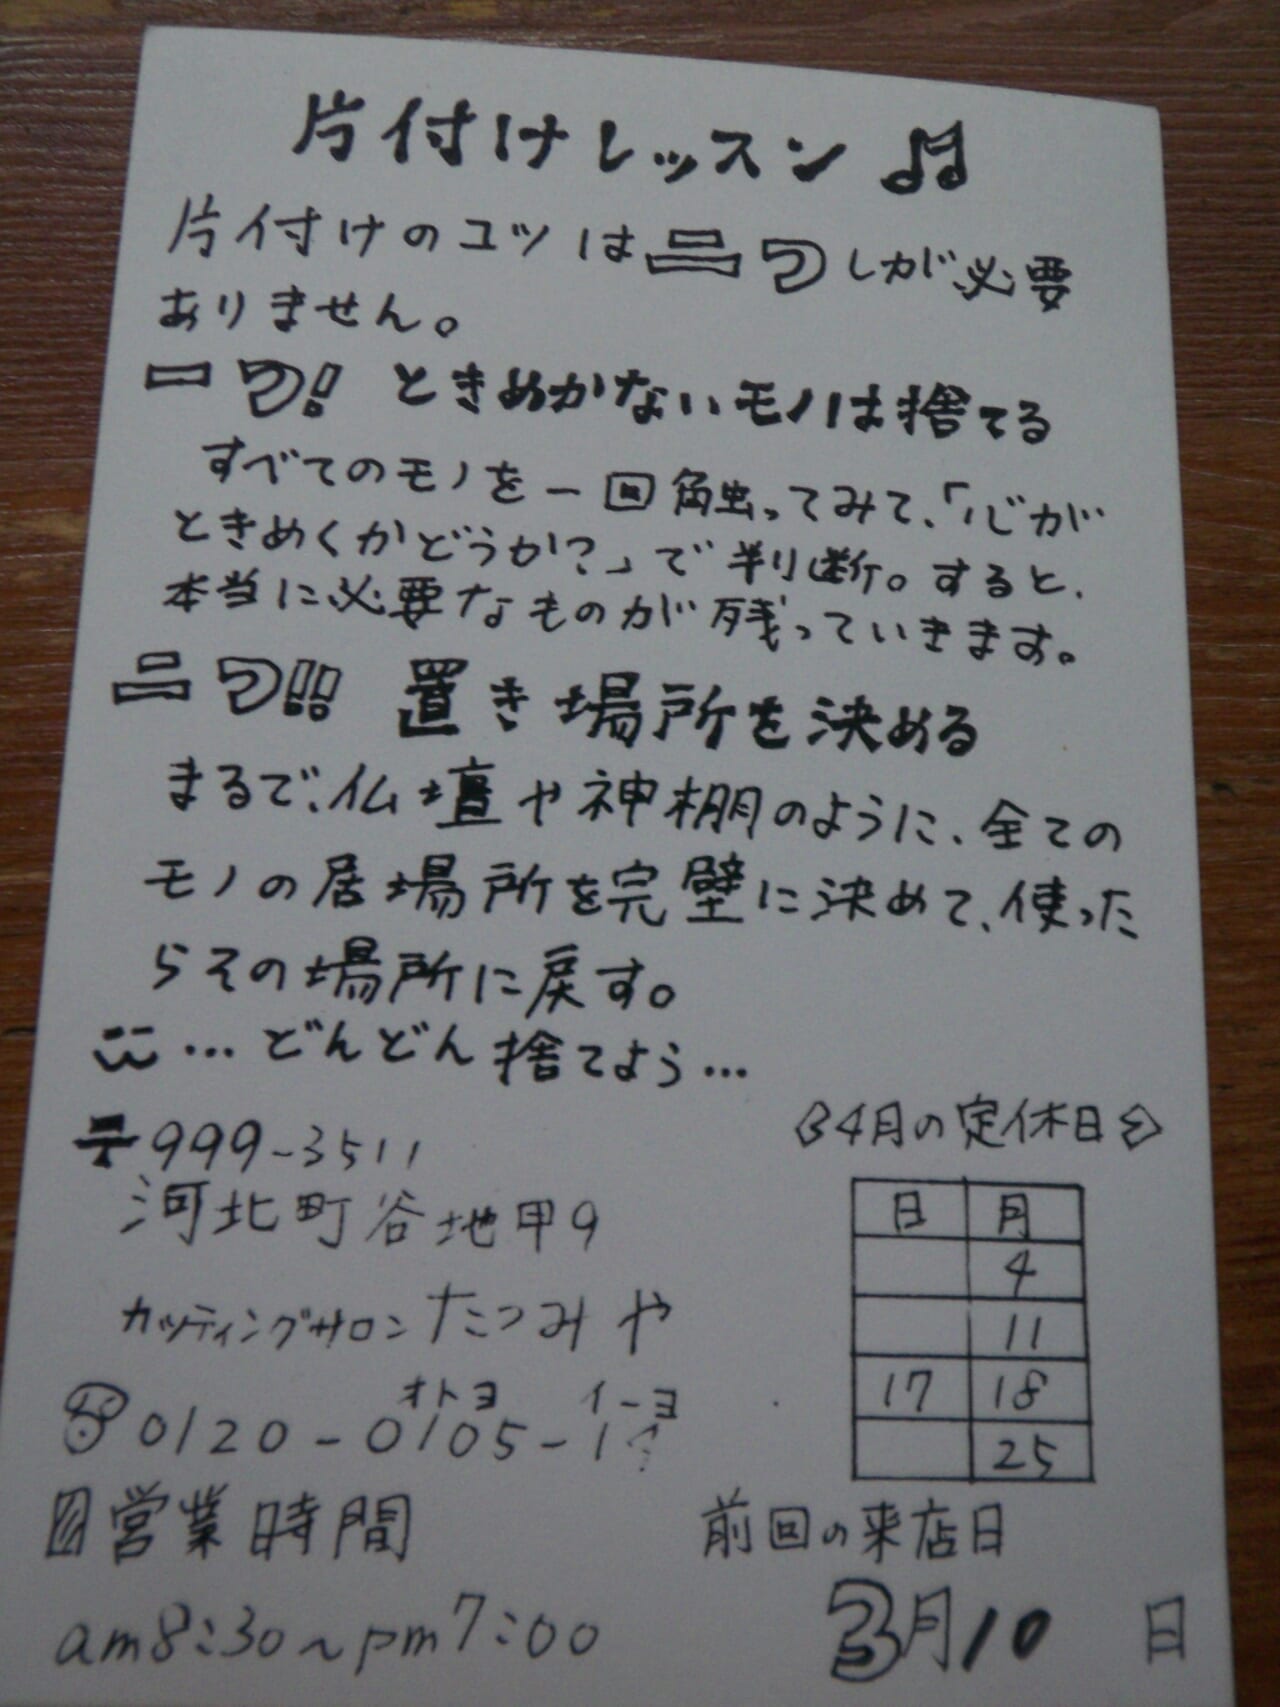 片付けレッスン♫
片付けのコツは二つしか必要
ありません。
一つ! ときめかないモノは捨てる
すべてのモノを一回触ってみて、「心が
ときめくかどうか?」で判断。すると、
本当に必要なものが残っていきます。
二つ!! 置き場所を決める
まるで、仏壇や神棚のように、全ての
モノの居場所を完璧に決めて、使った
らその場所に戻す。
…どんどん捨てよう…
〒999-3511
河北町谷地甲9
カッティングサロンたつみや
オトヨ イーヨ
0120-0105-14
営業時間
am8:30〜pm7:00
4月の定休日
日 月
4
11
17 18
25
前回の来店日
3月10日